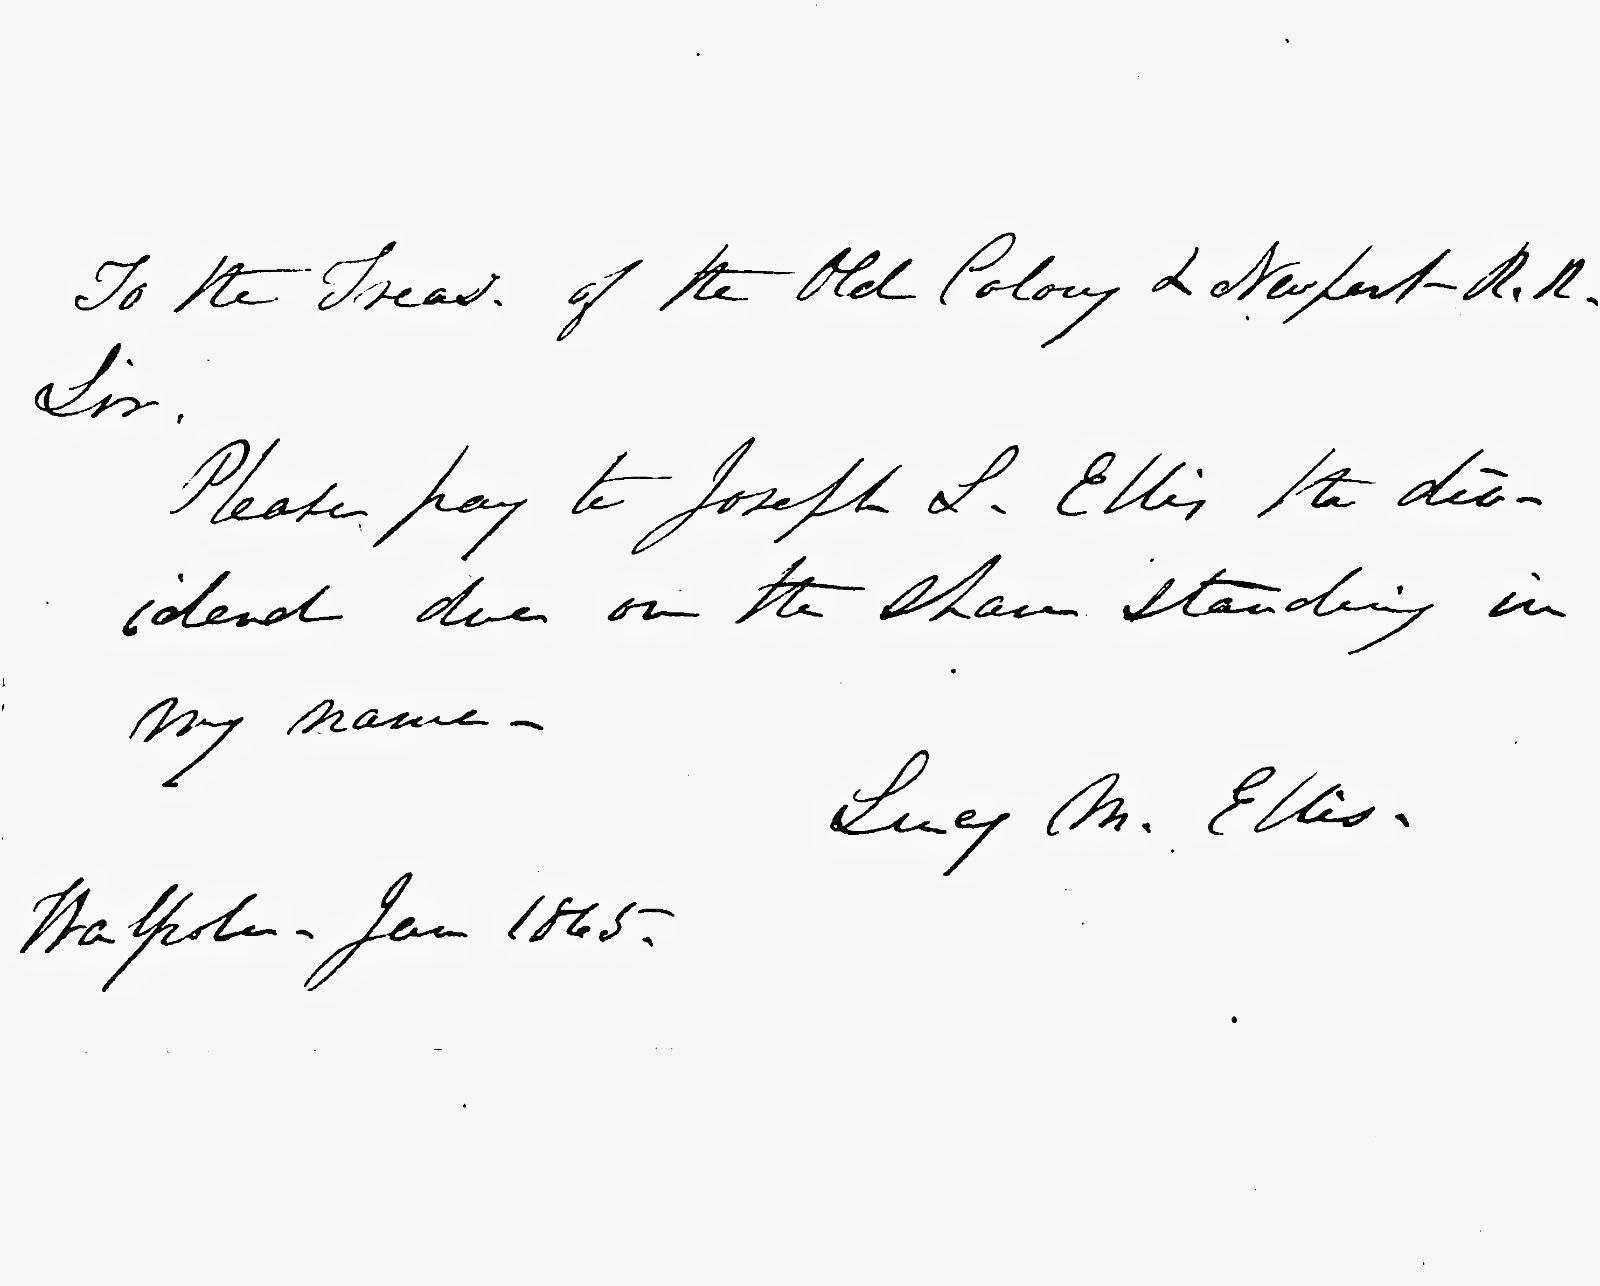 To the Treas. of the Old Colony & Newport R.R.
Sir.
Please pay to Joseph L. Ellis the div-
idend due on the share standing in
my name-
Lucy M. Ellis.
Walpole- Jan 1865.